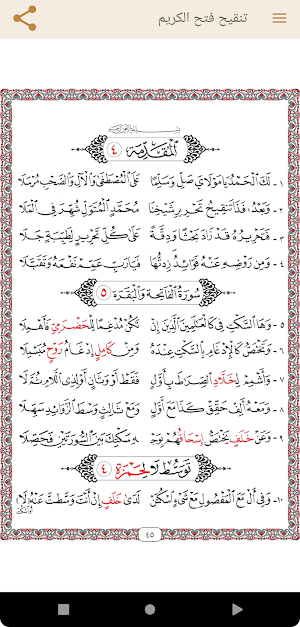 تنقيح فتح الكريم
المقدمة ٤
١ - لك الحمد يا مولاي صل وسلما على المصطفى والآل والصحب مرسلا
٢ - وبعد فذا تنقيح تحرير شيخنا محمد المتولي شهر في الملا
٣ - فتحريره قد زاد بحثا ودقة على كل تحرير لطيبة جلا
٤ - ومن روضه عنه فوائد زدتها فيا رب عمم نفعه وتقبلا
سورة الفاتحة والبقرة ٥
٥ - وها السكت في كالعالمين الذين إن تكن مدغما للحضرمي فأهملا
٦ - ويختص كالإدغام بالسكت عنده ومن كامل إدغام روح تقبلا
٧ - وأشمم لخلاد الصراط بأول فقط أو وثان أو لذي اللام نقلا
٨ - ومعه ألف حقق كذا مع أول ومع ثالث وسط الزوائد سهلا
٩ - وعن خلف يختص إسحاقهم بوجه سكتك بين السورتين فحصلا
توسط لا لحمزة ٤
١٠ - وفي أل مع المفصول مع شيء اسكتن لدى خلف إن أنت وسطت عنه لا
٤٥